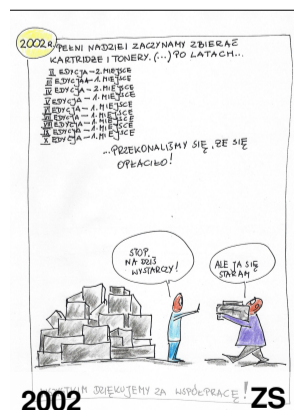 2002r.
PEŁNI NADZIEI ZACZYNAMY ZBIERAĆ
KARTRIDŻE I TONERY. (...) PO LATACH...
II EDYCJA – 2. MIEJSCE
III EDYCJA – 1. MIEJSCE
IV EDYCJA – 2. MIEJSCE
V EDYCJA – 1. MIEJSCE
VI EDYCJA – 1. MIEJSCE
VII EDYCJA – 1. MIEJSCE
VIII EDYCJA – 1. MIEJSCE
IX EDYCJA – 1. MIEJSCE
X EDYCJA – 1. MIEJSCE
...PRZEKONALIŚMY SIĘ, ŻE SIĘ
OPŁACIŁO!
STOP,
NA DZIŚ
WYSTARCZY!
ALE JA SIĘ
STARAM
WSZYSTKIM DZIĘKUJEMY ZA WSPÓŁPRACĘ!
2002 ZS